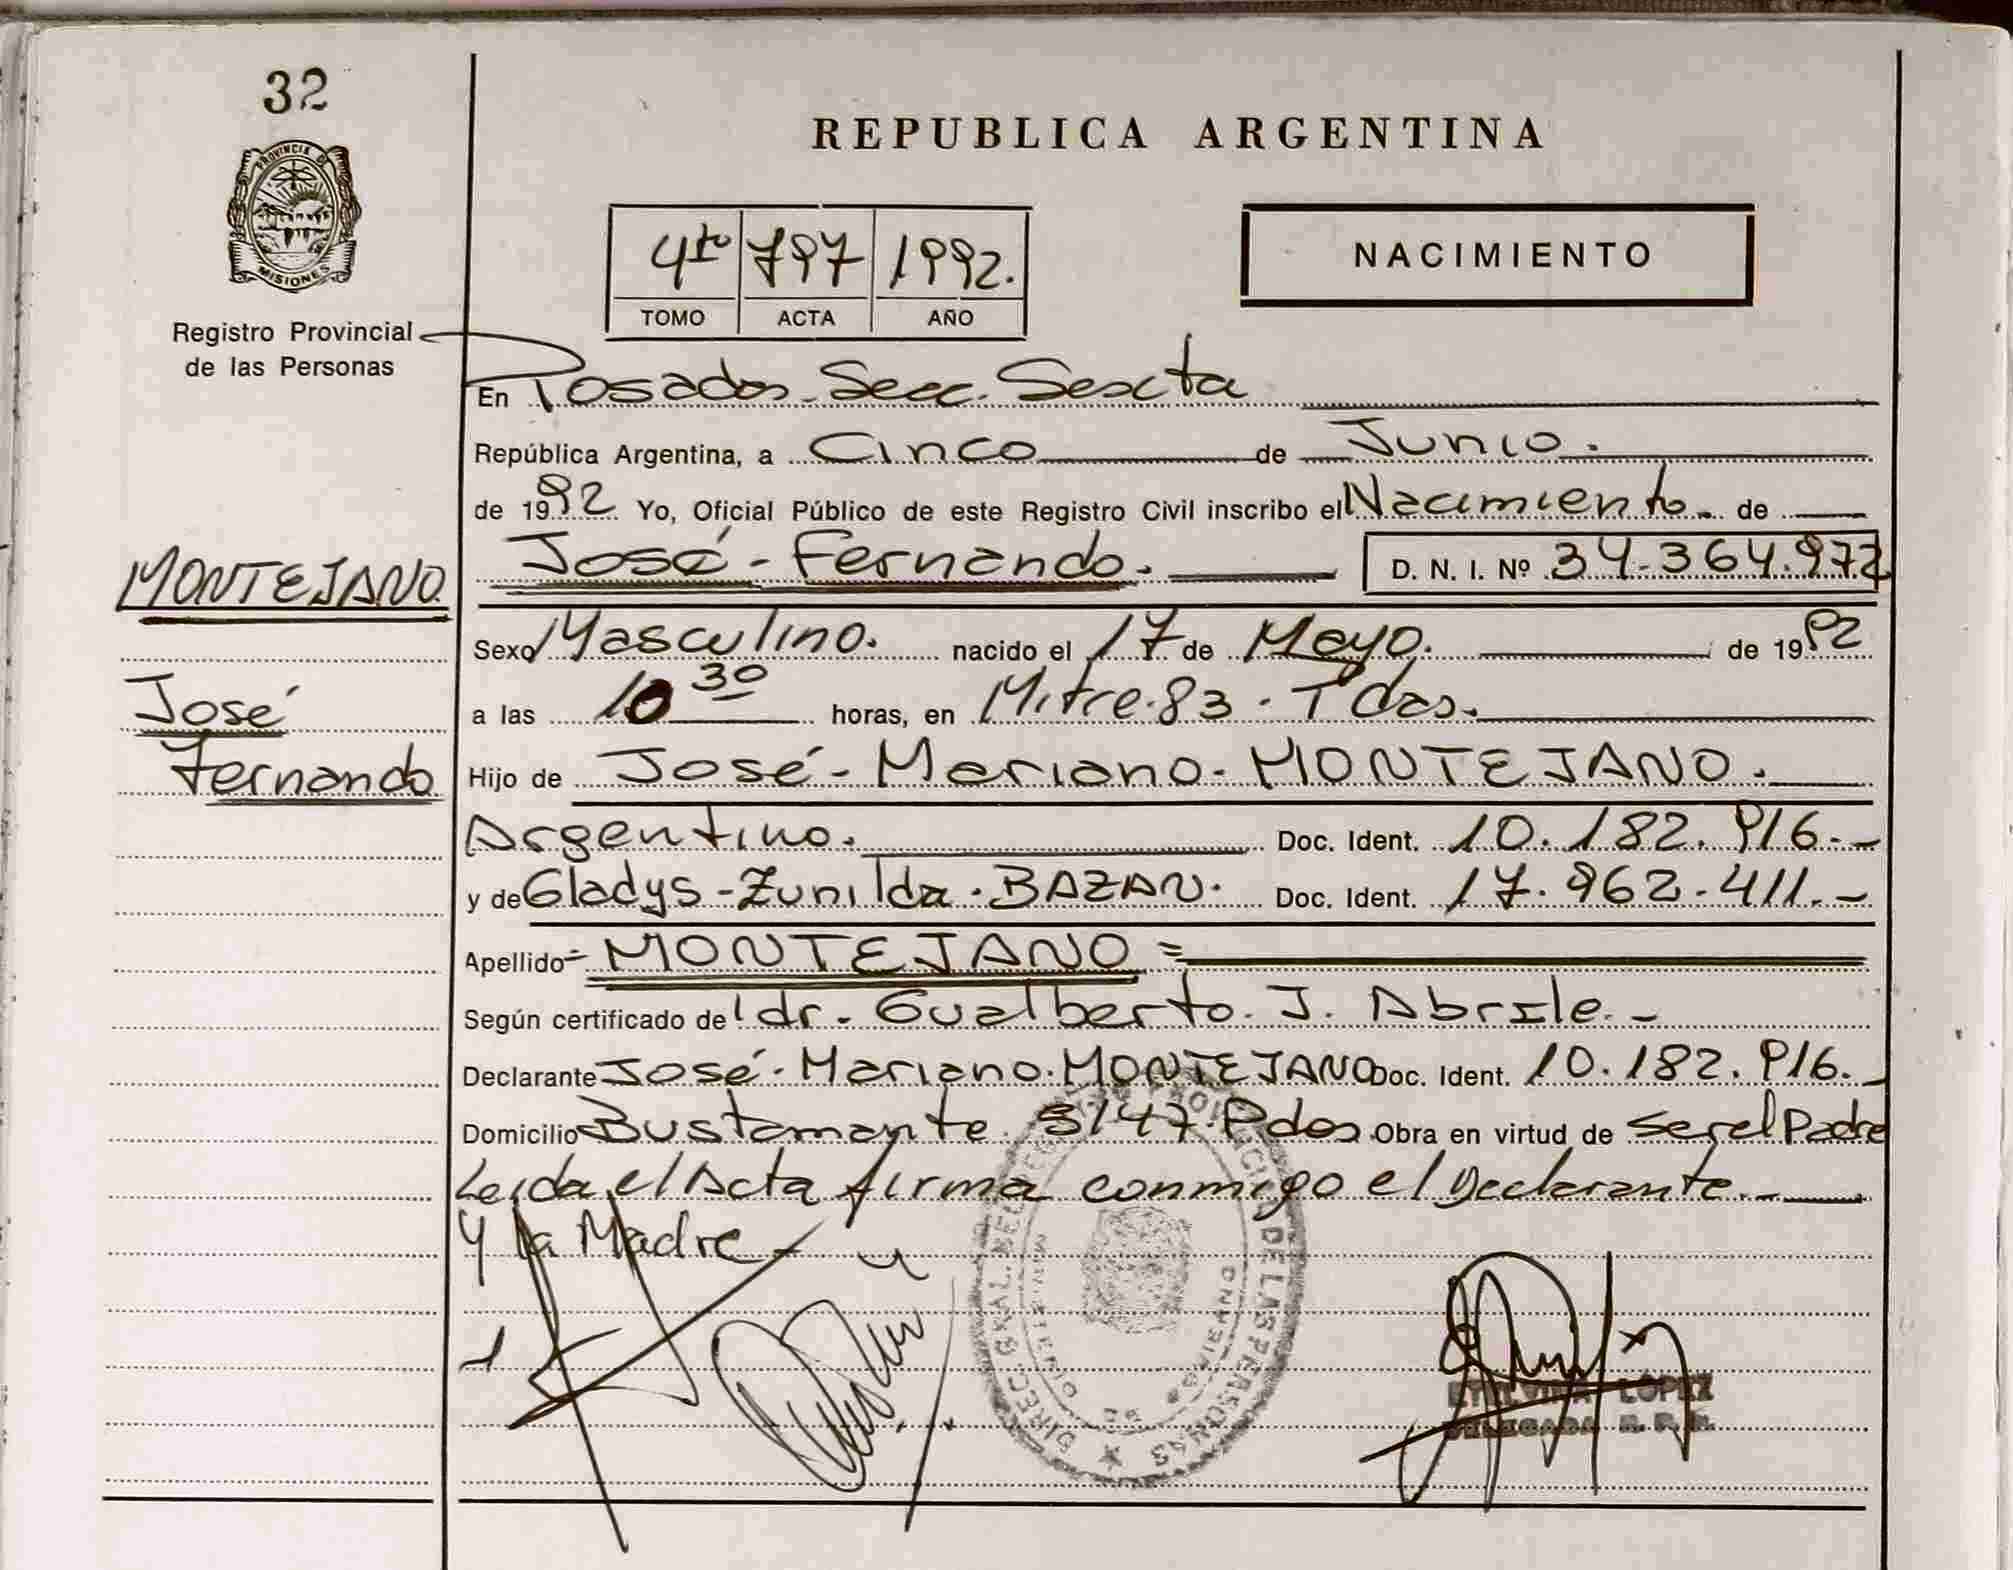 32
PROVINCIA DE
MISIONES
Registro Provincial
de las Personas
REPUBLICA ARGENTINA
4to 797 1992.
TOMO ACTA AÑO
NACIMIENTO
En Posadas Secc. Sexta
República Argentina, a Cinco de Junio.
de 1992 Yo, Oficial Público de este Registro Civil inscribo el Nacimiento de
MONTEJANO
José
Fernando
José - Fernando. D. N. I. Nº 34.364.972
Sexo Masculino. nacido el 17 de Mayo. de 1992
a las 10 30 horas, en Mitre 83 -
Hijo de José - Mariano - MONTEJANO.
Argentino. Doc. Ident. 10.182.916.-
y de Gladys - Zunilda - BAZAN. Doc. Ident. 17.962.411.-
Apellido = MONTEJANO =
Según certificado del dr. Gualberto. J. Abrile. -
Declarante José - Mariano. MONTEJANO Doc. Ident. 10.182.916. -
Domicilio Bustamante 3147. Pdas Obra en virtud de ser el Padre
Leida el Acta firma conmigo el Declarante. -
y la Madre -
DIREC. GRAL. DEL REG. PROVINCIAL DE LAS PERSONAS
LOPEZ
DELEGADA R. P. P.